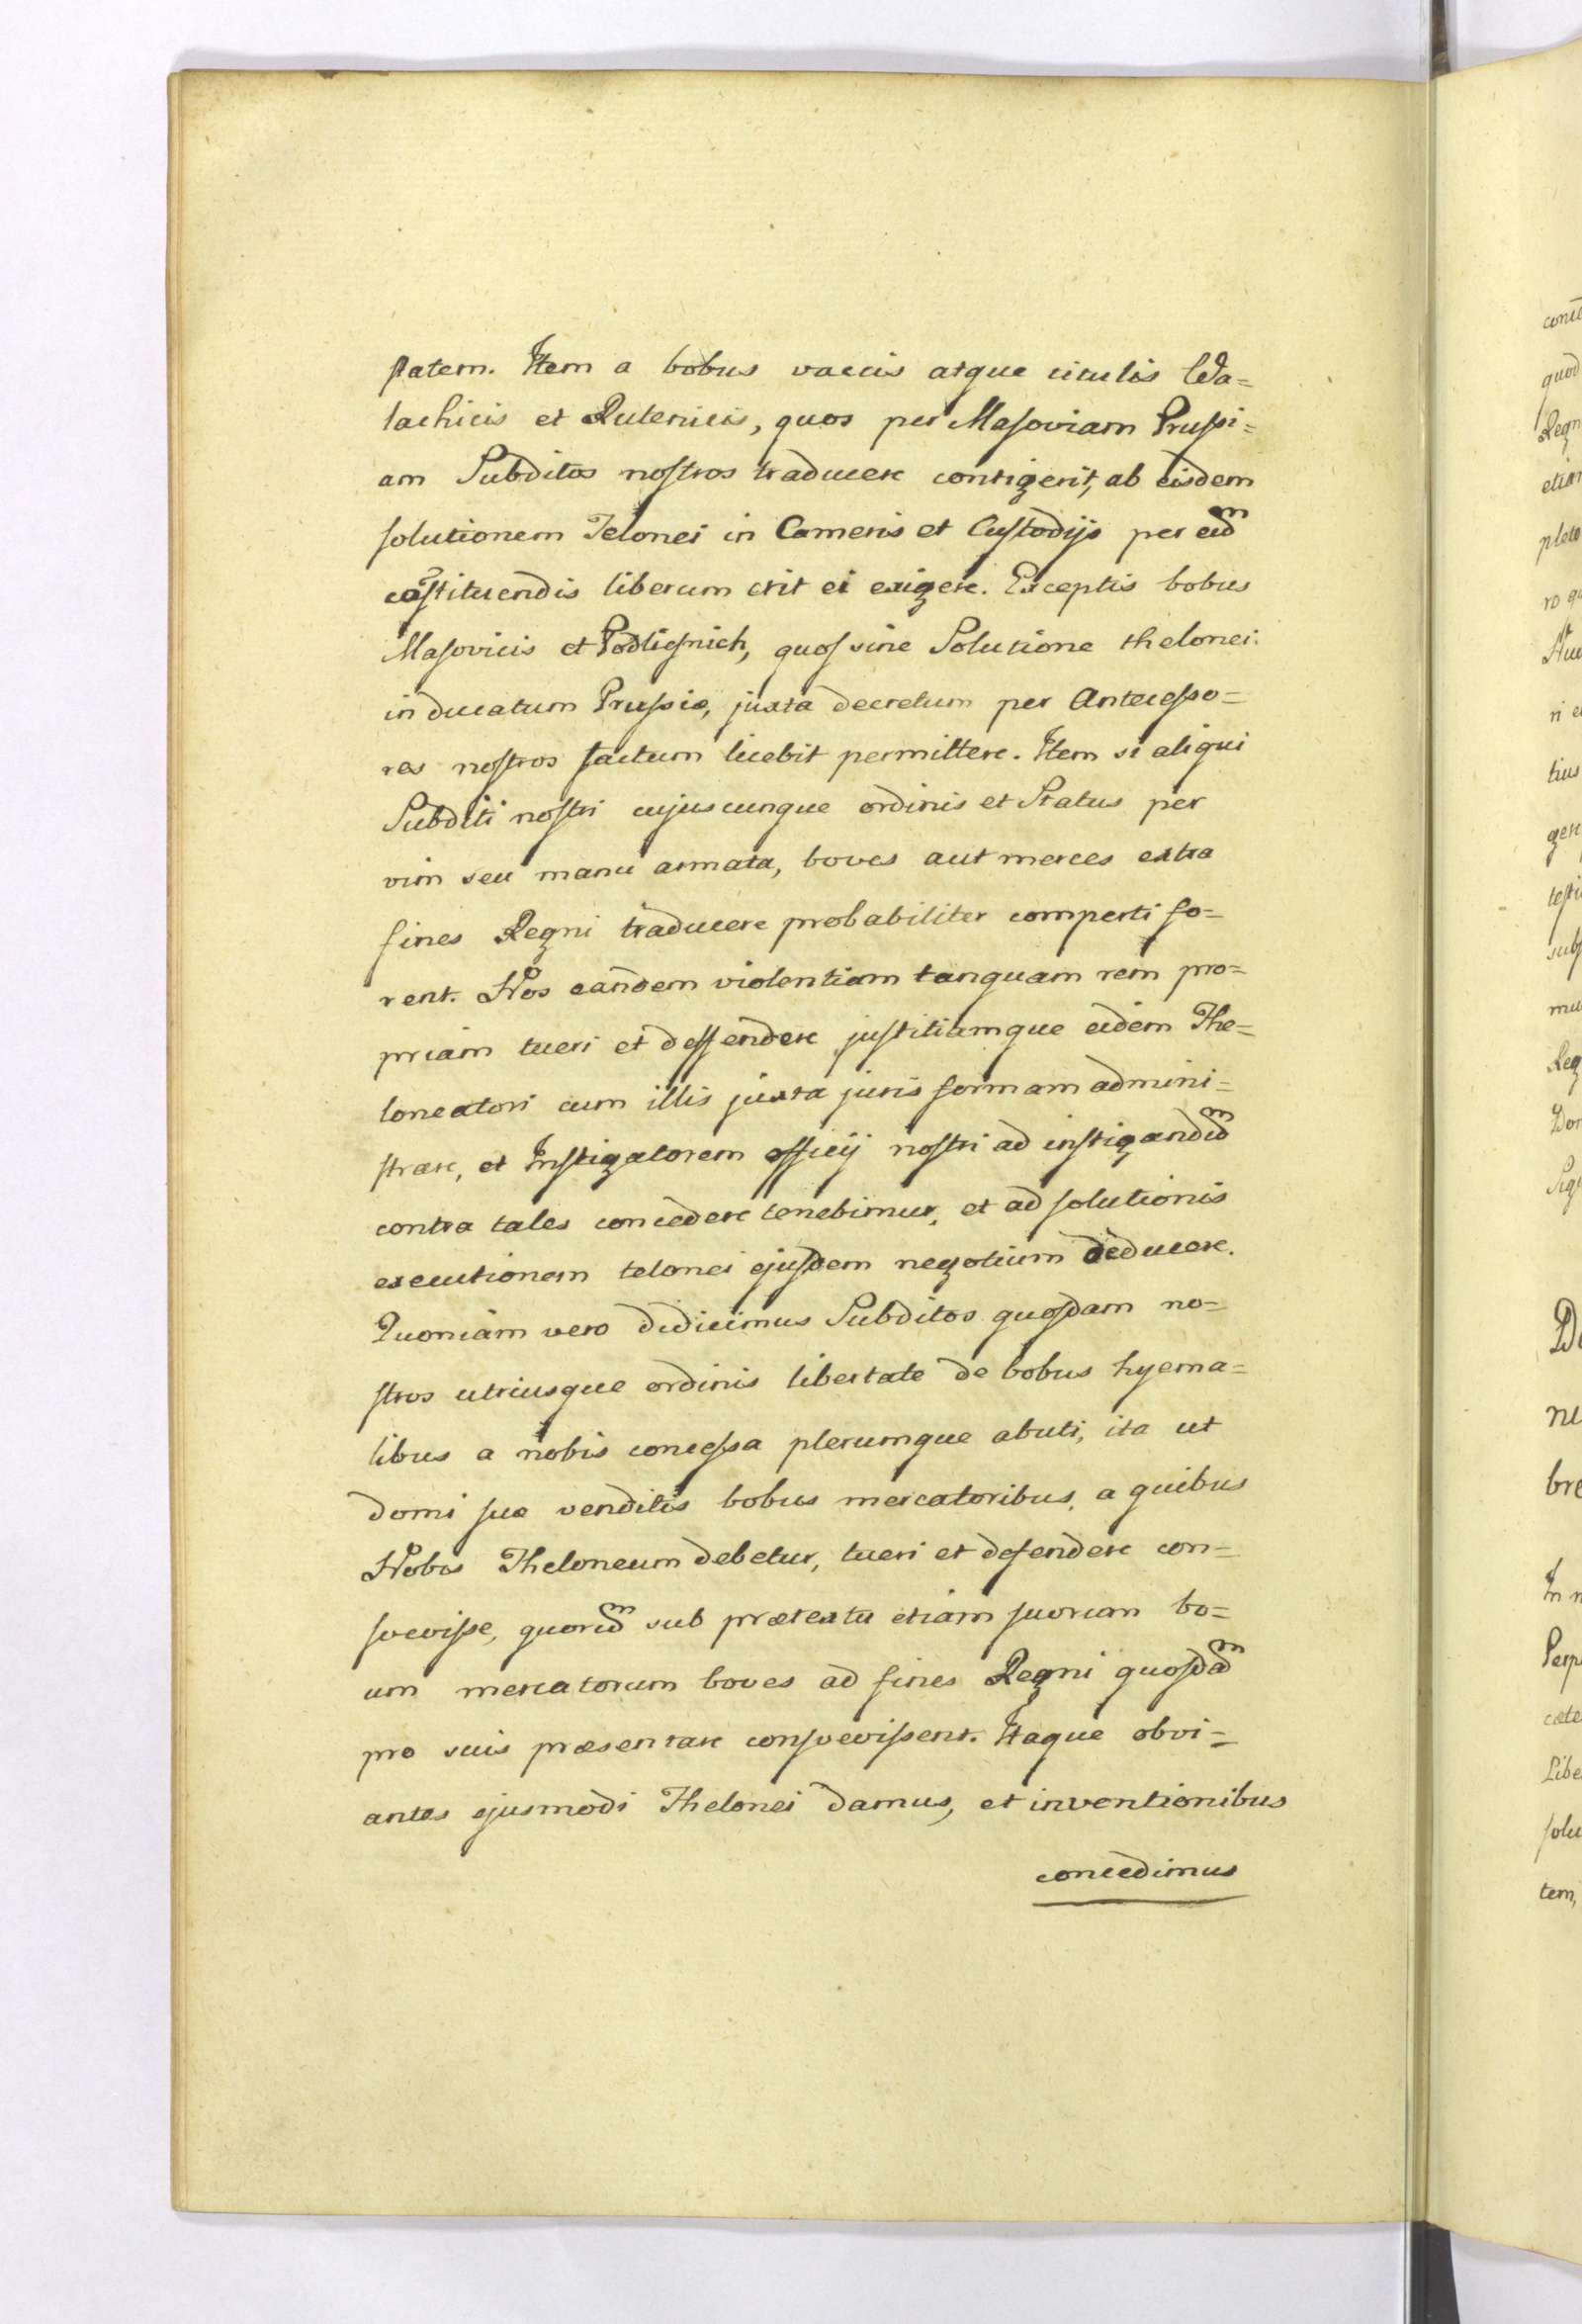 statem. Item a bobus vaccis atque vitulis Wa=
lachicis et Rutenicis, quos per Masoviam Prussi=
am Subditos nostros traducere contigerit, ab eisdem
solutionem Telonei in Cameris et Custodijs per eūdm
cōstituendis liberum erit ei exigere. Exceptis bobus
Masovicis et Podliesnich, quos sine Solutione thelonei
in ducatum Prussiæ, juxta decretum per Antecesso=
res nostros factum licebit permittere. Item si aliqui
Subditi nostri cujuscunque ordinis et Status per
vim seu manu armata, boves aut merces extra
fines Regni traducere probabiliter comperti fo=
rent. Nos eandem violentiam tanquam rem pro=
priam tueri et deffendere justitiamque eidem The=
loneatori cum illis juxta juris formam admini=
strare, et Instigatorem officij nostri ad instigandum
contra tales concedere tenebimur, et ad solutionis
executionem telonei ejusdem negotium deducere.
Quoniam vero didicimus Subditos quosdam no=
stros utriusque ordinis libertate de bobus hyema=
libus a nobis concessa plerumque abuti, ita ut
domi suæ venditis bobus mercatoribus, a quibus
Nobis Theloneum debetur, tueri et defendere con=
svevisse, quorum sub prætextu etiam suorum bo=
um mercatorum boves ad fines Regni quosdam
pro suis præsentare consvevissent. Itaque obvi=
antes ejusmodi Thelonei damus, et inventionibus
concedimus